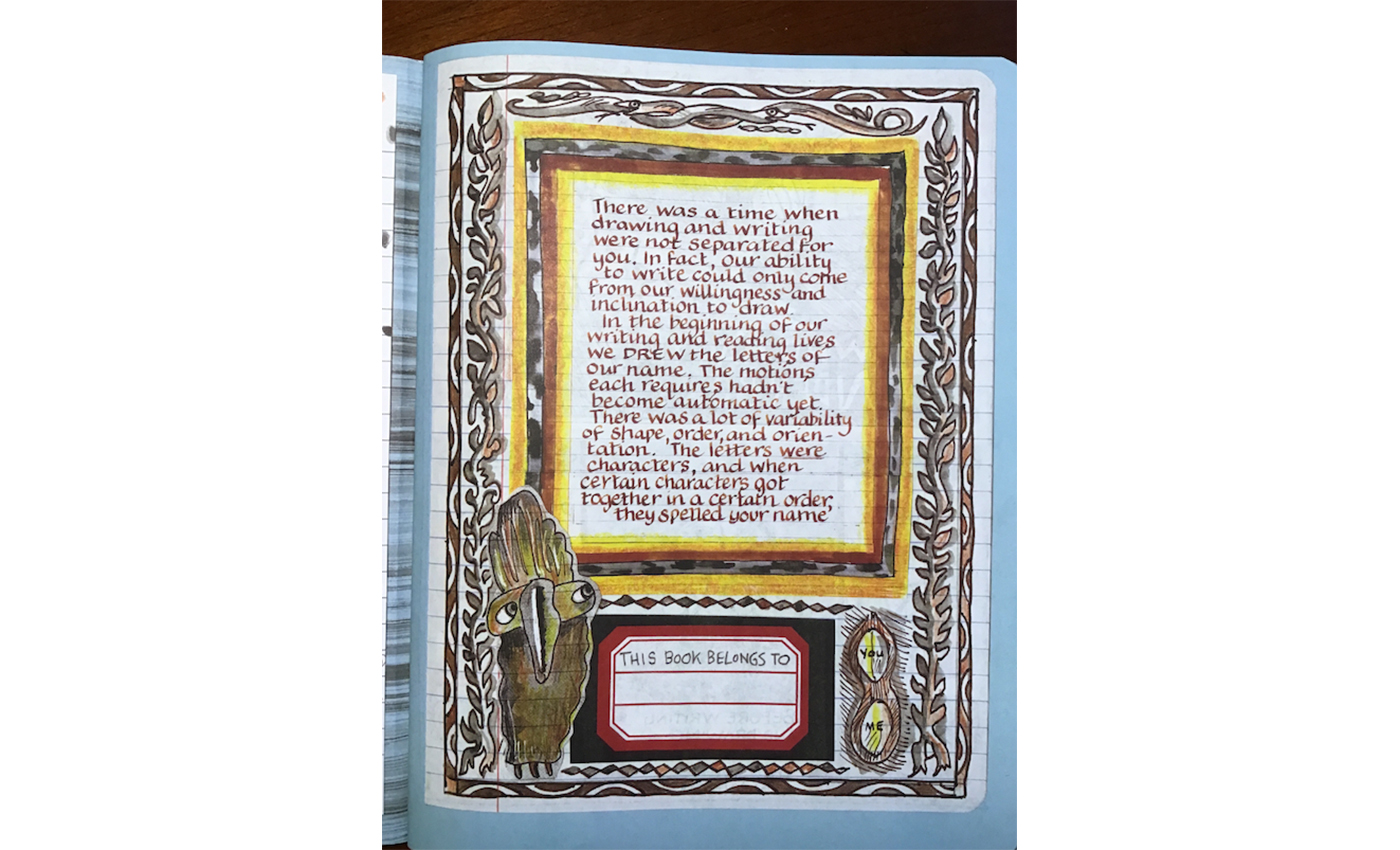 There was a time when
drawing and writing
were not separated for
you. In fact, our ability
to write could only come
from our willingness and
inclination to draw.
In the beginning of our
writing and reading lives
we DREW the letters of
our name. The motions
each requires hadn't
become automatic yet.
There was a lot of variability
of shape, order, and orien-
tation. The letters were
characters, and when
certain characters got
together in a certain order,
they spelled your name
THIS BOOK BELONGS TO
You
ME